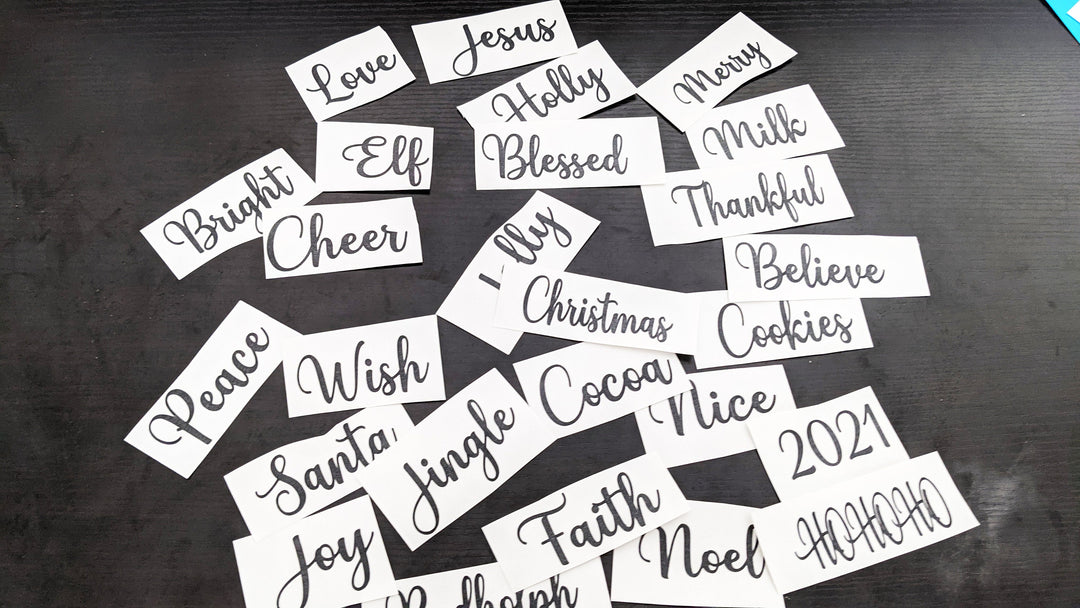 Jesus
Love
Merry
Holly
Milk
Elf
Blessed
Bright
Thankful
Cheer
lly
Believe
Christmas
Cookies
Peace
Wish
Cocoa
Nice
Santa
Jingle
2021
Faith
HOHOHO
Joy
Noel
Rudholph